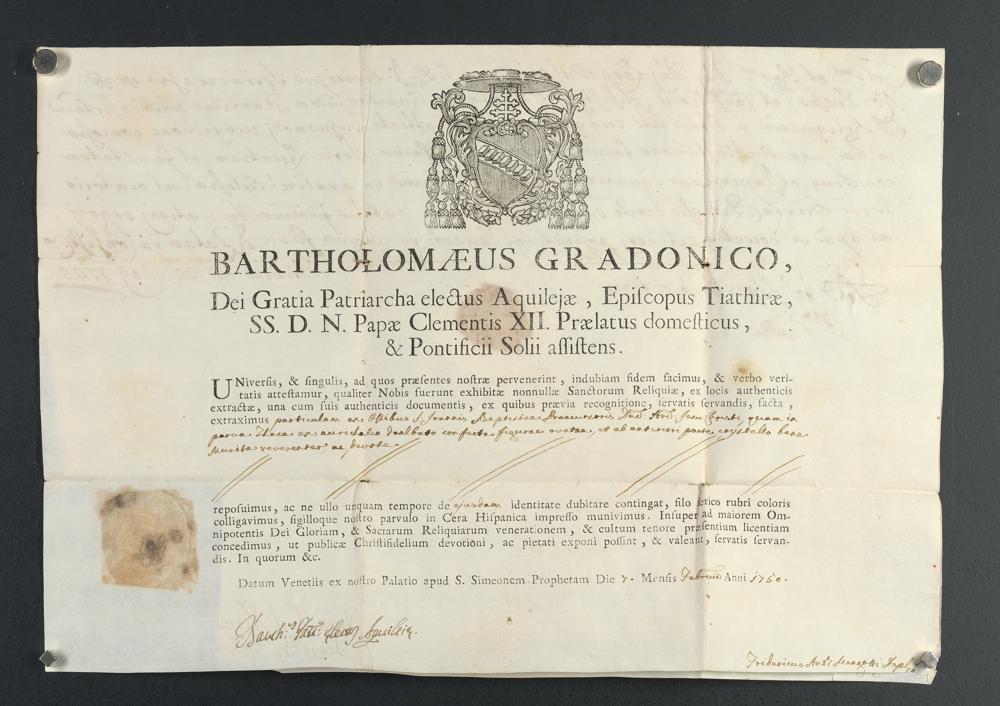 BARTHOLOMÆUS GRADONICO,
Dei Gratia Patriarcha electus Aquilejæ, Epiſcopus Tiathiræ,
SS. D. N. Papæ Clementis XII. Prælatus domeſticus,
& Pontificii Solii aſſiſtens.
UNiverſis, & ſingulis, ad quos præſentes noſtræ pervenerint, indubiam fidem facimus, & verbo veri-
tatis atteſtamur, qualiter Nobis fuerunt exhibitæ nonnullæ Sanctorum Reliquiæ, ex locis authenticis
extractæ, una cum ſuis authenticis documentis, ex quibus prævia recognitione, ſervatis ſervandis, facta,
extraximus particulam ex Ossibus S. Joannis Baptistae Praecursoris Dnī. Nrī. Jesu Christi, quam in
parva Theca ex auricalco dealbato confecta figurae ovatae, et ab anteriori parte crystallo bene
munita reverenter, ac devote
repoſuimus, ac ne ullo unquam tempore de ejusdem identitate dubitare contingat, filo ſerico rubri coloris
colligavimus, ſigilloque noſtro parvulo in Cera Hiſpanica impreſſo munivimus. Inſuper ad maiorem Om-
nipotentis Dei Gloriam, & Sacrarum Reliquiarum venerationem, & cultum tenore præſentium licentiam
concedimus, ut publicæ Chriſtifidelium devotioni, ac pietati exponi poſſint, & valeant, ſervatis ſervan-
dis. In quorum &c.
Datum Venetiis ex noſtro Palatio apud S. Simeonem Prophetam Die 7. Menſis Anni 1730.
Barth.s Patr. Elect. Aquileiæ.